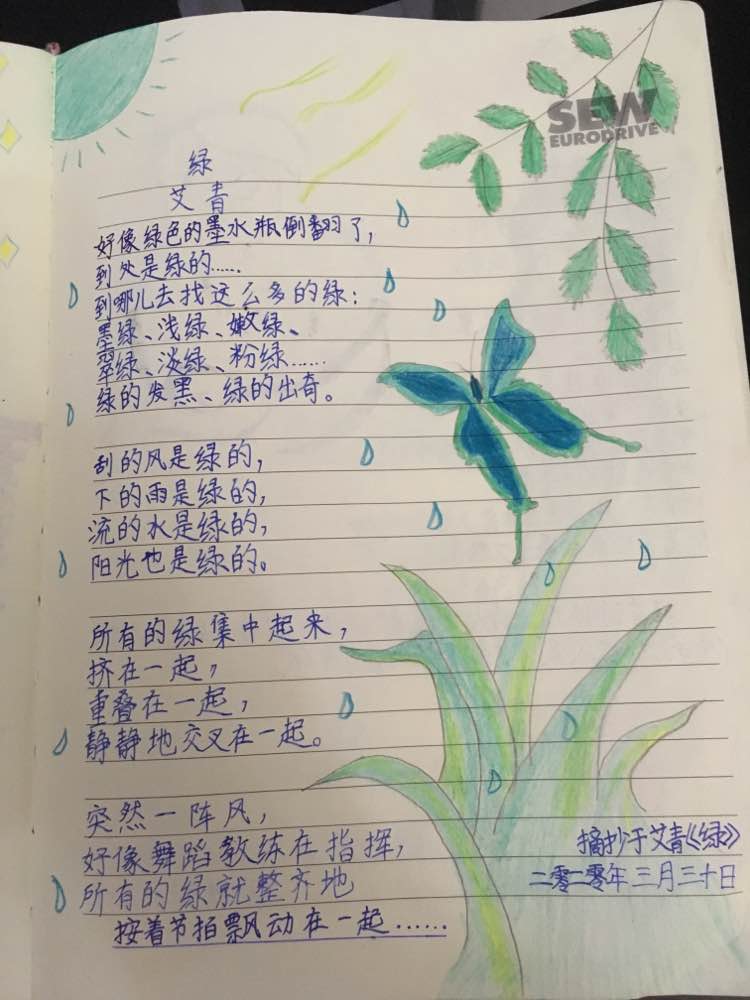 SEW
EURODRIVE
绿
艾青
好像绿色的墨水瓶倒翻了，
到处是绿的……
到哪儿去找这么多的绿：
墨绿、浅绿、嫩绿、
翠绿、淡绿、粉绿……
绿的发黑、绿的出奇。
刮的风是绿的，
下的雨是绿的，
流的水是绿的，
阳光也是绿的。
所有的绿集中起来，
挤在一起，
重叠在一起，
静静地交叉在一起。
突然一阵风，
好像舞蹈教练在指挥，
所有的绿就整齐地
按着节拍飘动在一起……
摘抄于艾青《绿》
二零二零年三月三十日